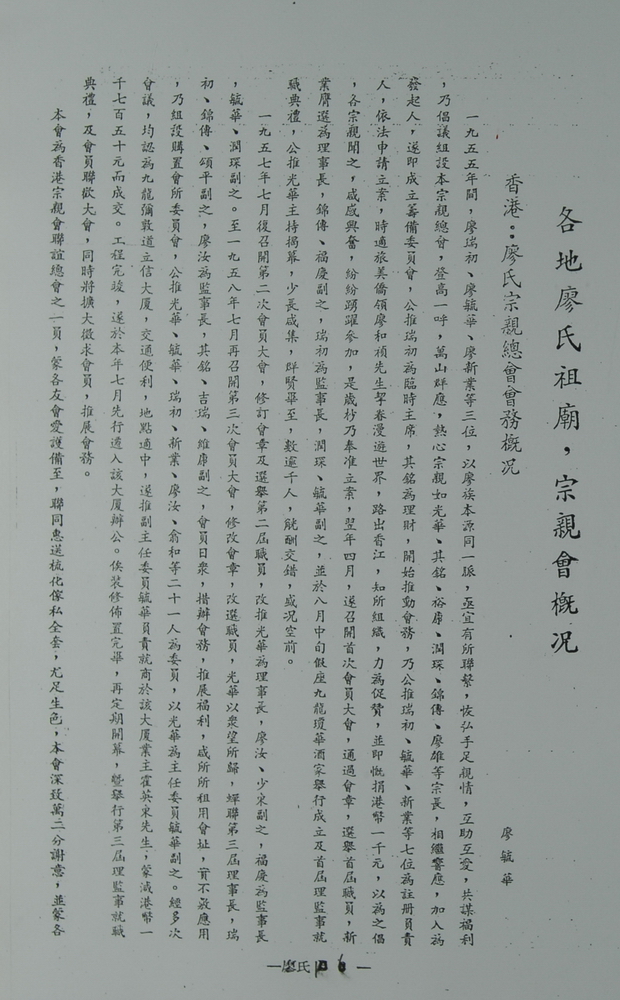 各地廖氏祖廟，宗親會概況
香港：廖氏宗親總會會務概况
廖毓華
一九五五年間，廖瑞初、廖毓華、廖新業等三位，以廖族本源同一脈，亟宜有所聯繫，恢弘手足親情，互助互愛，共謀福利
，乃倡議組設本宗親總會，登高一呼，萬山群應，熱心宗親如光華、其銘、裕康、潤琛、錦傳、廖雄等宗長，相繼響應，加入為
發起人，遂即成立籌備委員會，公推瑞初為臨時主席，其銘為理財，開始推動會務，乃公推瑞初、毓華、新業等七位為註冊員責
人，依法申請立案，時適旅美僑領廖和禎先生挈眷漫遊世界，路出香江，知所組織，力為促贊，並即慨捐港幣一千元，以為之倡
，各宗親聞之，咸感興奮，紛紛踴躍參加，是歲杪乃奉准立案，翌年四月，遂召開首次會員大會，通過會章，選舉首屆職員，新
業膺選為理事長，錦傳、福慶副之，瑞初為監事長，潤琛、毓華副之，並於八月中旬假座九龍瓊華酒家舉行成立及首屆理監事就
職典禮，公推光華主持揭幕，少長咸集，群賢畢至，數逾千人，觥酬交錯，盛况空前。
一九五七年七月復召開第二次會員大會，修訂會章及選舉第二屆職員，改推光華為理事長，廖汝、少宋副之，福慶為監事長
，毓華、潤琛副之。至一九五八年七月再召開第三次會員大會，修改會章，改選職員，光華以眾望所歸，蟬聯第三屆理事長，瑞
初、錦傳、頌平副之，廖汝為監事長，其銘、吉瑞、維康副之，會員日衆，措辦會務，推展福利，咸所所租用會址，實不敷應用
，乃組設購置會所委員會，公推光華、毓華、瑞初、新業、廖汝、俞和等二十一人為委員，以光華為主任委員毓華副之。經多次
會議，均認為九龍彌敦道立信大厦，交通便利，地點適中，遂推副主任委員毓華員責就商於該大厦業主霍英東先生，蒙減港幣一
千七百五十元而成交。工程完竣，遂於本年七月先行遷入該大厦辦公。俟裝修佈置完畢，再定期開幕，暨舉行第三屆理監事就職
典禮，及會員聯歡大會，同時將擴大徵求會員，推展會務。
本會為香港宗親會聯誼總會之一員，蒙各友會愛護備至，聯同惠送梳化傢私全套，尤足生色，本會深致萬二分謝意，並蒙各
—廖氏 —